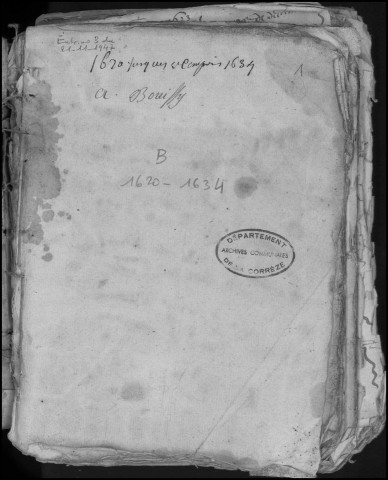 Entrée no 8 du
21-11-1947
1620 jusques et compris 1634
1
A. Bouissy
B
1620 - 1634
DÉPARTEMENT
ARCHIVES COMMUNALES
DE LA CORRÈZE